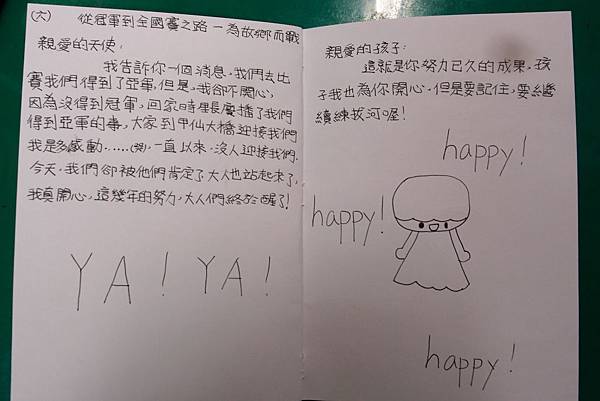 (六) 從冠軍到全國賽之路－為故鄉而戰
親愛的天使：
我告訴你一個消息，我們去比
賽我們得到了亞軍，但是，我卻不開心，
因為沒得到冠軍，回家時里長廣播了我們
得到亞軍的事，大家到甲仙大橋迎接我們
我是多感動……(哭)，一直以來，沒人迎接我們，
今天，我們卻被他們肯定了大人也站起來了，
我真開心，這幾年的努力，大人們終於醒了！
YA！YA！
親愛的孩子：
這就是你努力已久的成果，孩
子我也為你開心，但是要記住，要繼
續練拔河喔！
happy！
happy！
happy！